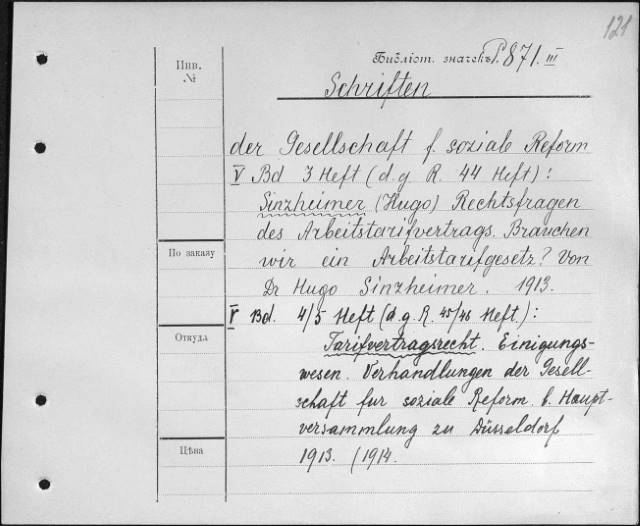 121
Инв.
№
Библіот. значекъ P.871.III
Schriften
der Gesellschaft f. soziale Reform
V Bd 3 Heft (d.g R. 44 Heft):
Sinzheimer (Hugo) Rechtsfragen
des Arbeitstarifvertrags. Brauchen
wir ein Arbeitstarifgesetz? Von
По заказу
Dr Hugo Sinzheimer. 1913.
V Bd. 4/5 Heft (d.g.R. 45/46 Heft.):
Откуда
Tarifvertragsrecht. Einigungs-
wesen. Verhandlungen der Gesell-
schaft fur soziale Reform. 6. Haupt-
versammlung zu Düsseldorf
Цѣна
1913. (1914.